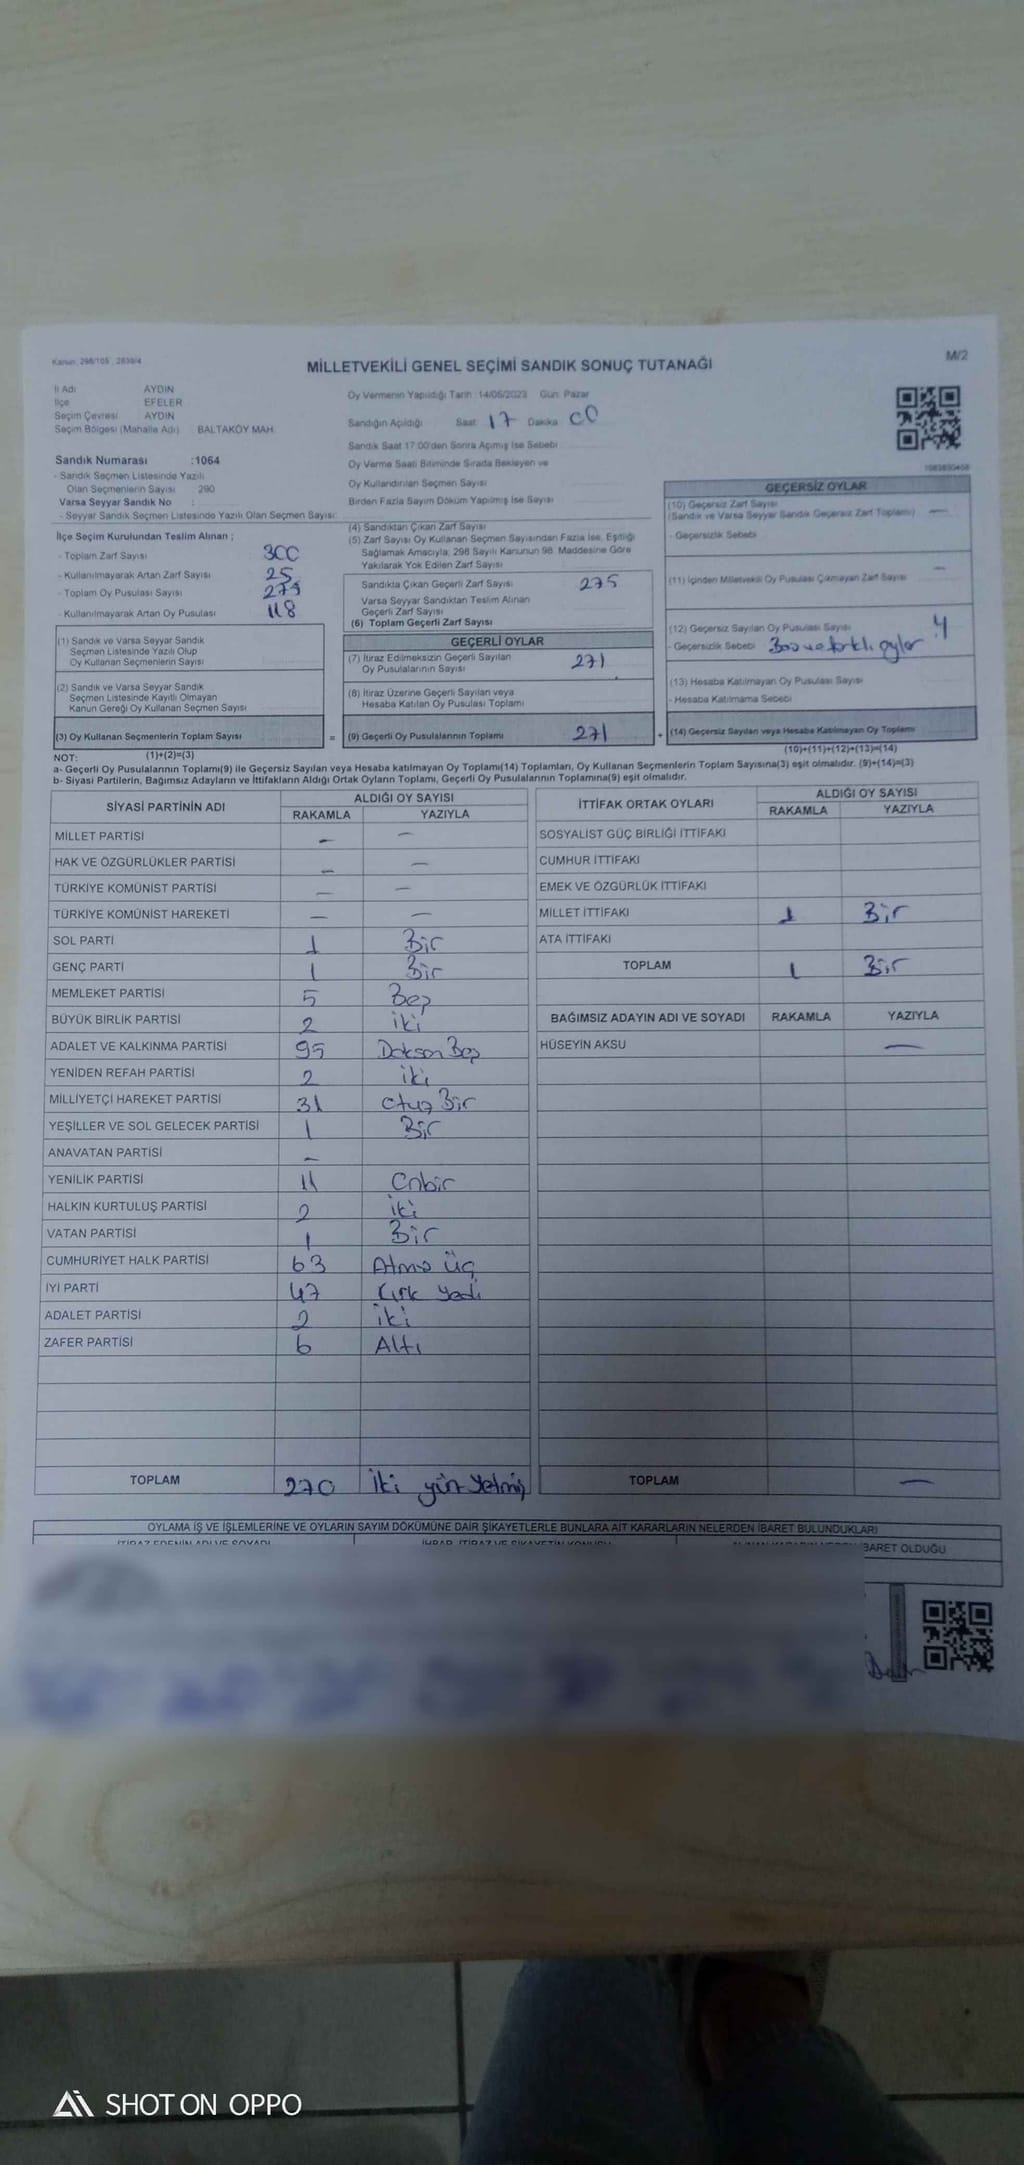 Kanun: 298/105 , 2839/4
MİLLETVEKİLİ GENEL SEÇİMİ SANDIK SONUÇ TUTANAĞI
M/2
İl Adı AYDIN
İlçe EFELER
Seçim Çevresi AYDIN
Seçim Bölgesi (Mahalle Adı) BALTAKÖY MAH.
Sandık Numarası :1064
- Sandık Seçmen Listesinde Yazılı
Olan Seçmenlerin Sayısı : 290
Varsa Seyyar Sandık No :
- Seyyar Sandık Seçmen Listesinde Yazılı Olan Seçmen Sayısı:
İlçe Seçim Kurulundan Teslim Alınan ;
- Toplam Zarf Sayısı 300
- Kullanılmayarak Artan Zarf Sayısı 25
- Toplam Oy Pusulası Sayısı
- Kullanılmayarak Artan Oy Pusulası 118
(1) Sandık ve Varsa Seyyar Sandık
Seçmen Listesinde Yazılı Olup
Oy Kullanan Seçmenlerin Sayısı
(2) Sandık ve Varsa Seyyar Sandık
Seçmen Listesinde Kayıtlı Olmayan
Kanun Gereği Oy Kullanan Seçmen Sayısı
(3) Oy Kullanan Seçmenlerin Toplam Sayısı =
Oy Vermenin Yapıldığı Tarih : 14/05/2023 Gün: Pazar
Sandığın Açıldığı Saat: 17 Dakika 00
Sandık Saat 17:00'den Sonra Açımış İse Sebebi
Oy Verme Saati Bitiminde Sırada Bekleyen ve
Oy Kullandırılan Seçmen Sayısı
Birden Fazla Sayım Döküm Yapılmış İse Sayısı
(4) Sandıktan Çıkan Zarf Sayısı
(5) Zarf Sayısı Oy Kullanan Seçmen Sayısından Fazla İse, Eşitliği
Sağlamak Amacıyla; 298 Sayılı Kanunun 98. Maddesine Göre
Yakılarak Yok Edilen Zarf Sayısı
Sandıkta Çıkan Geçerli Zarf Sayısı 275
Varsa Seyyar Sandıktan Teslim Alınan
Geçerli Zarf Sayısı
(6) Toplam Geçerli Zarf Sayısı
GEÇERLİ OYLAR
(7) İtiraz Edilmeksizin Geçerli Sayılan
Oy Pusulalarının Sayısı 271
(8) İtiraz Üzerine Geçerli Sayılan veya
Hesaba Katılan Oy Pusulası Toplamı
(9) Geçerli Oy Pusulalarının Toplamı 271 +
GEÇERSİZ OYLAR
(10) Geçersiz Zarf Sayısı
(Sandık ve Varsa Seyyar Sandık Geçersiz Zarf Toplamı) —
- Geçersizlik Sebebi
(11) İçinden Milletvekili Oy Pusulası Çıkmayan Zarf Sayısı —
(12) Geçersiz Sayılan Oy Pusulası Sayısı 4
- Geçersizlik Sebebi oylar
(13) Hesaba Katılmayan Oy Pusulası Sayısı
- Hesaba Katılmama Sebebi
(14) Geçersiz Sayılan veya Hesaba Katılmayan Oy Toplamı
NOT: (1)+(2)=(3) (10)+(11)+(12)+(13)=(14)
a- Geçerli Oy Pusulalarının Toplamı(9) ile Geçersiz Sayılan veya Hesaba katılmayan Oy Toplamı(14) Toplamları, Oy Kullanan Seçmenlerin Toplam Sayısına(3) eşit olmalıdır. (9)+(14)=(3)
b- Siyasi Partilerin, Bağımsız Adayların ve İttifakların Aldığı Ortak Oyların Toplamı, Geçerli Oy Pusulalarının Toplamına(9) eşit olmalıdır.
SİYASİ PARTİNİN ADI ALDIĞI OY SAYISI
RAKAMLA YAZIYLA
MİLLET PARTİSİ — —
HAK VE ÖZGÜRLÜKLER PARTİSİ — —
TÜRKİYE KOMÜNİST PARTİSİ — —
TÜRKİYE KOMÜNİST HAREKETİ — —
SOL PARTİ 1 Bir
GENÇ PARTİ 1 Bir
MEMLEKET PARTİSİ 5 Beş
BÜYÜK BİRLİK PARTİSİ 2 iki
ADALET VE KALKINMA PARTİSİ 95 Doksan Beş
YENİDEN REFAH PARTİSİ 2 iki
MİLLİYETÇİ HAREKET PARTİSİ 31 otuz Bir
YEŞİLLER VE SOL GELECEK PARTİSİ 1 Bir
ANAVATAN PARTİSİ —
YENİLİK PARTİSİ 11 Onbir
HALKIN KURTULUŞ PARTİSİ 2 iki
VATAN PARTİSİ 1 Bir
CUMHURİYET HALK PARTİSİ 63 Atmış Üç
İYİ PARTİ 47 Kırk Yedi
ADALET PARTİSİ 2 iki
ZAFER PARTİSİ 6 Altı
TOPLAM 270 İki yüz Yetmiş
İTTİFAK ORTAK OYLARI ALDIĞI OY SAYISI
RAKAMLA YAZIYLA
SOSYALİST GÜÇ BİRLİĞİ İTTİFAKI
CUMHUR İTTİFAKI
EMEK VE ÖZGÜRLÜK İTTİFAKI
MİLLET İTTİFAKI 1 Bir
ATA İTTİFAKI
TOPLAM 1 Bir
BAĞIMSIZ ADAYIN ADI VE SOYADI RAKAMLA YAZIYLA
HÜSEYİN AKSU —
TOPLAM —
OYLAMA İŞ VE İŞLEMLERİNE VE OYLARIN SAYIM DÖKÜMÜNE DAİR ŞİKAYETLERLE BUNLARA AİT KARARLARIN NELERDEN İBARET BULUNDUKLARI
İTİRAZ EDENİN ADI VE SOYADI İHBAR, İTİRAZ VE ŞİKAYETİN KONUSU BARET OLDUĞU
SHOT ON OPPO